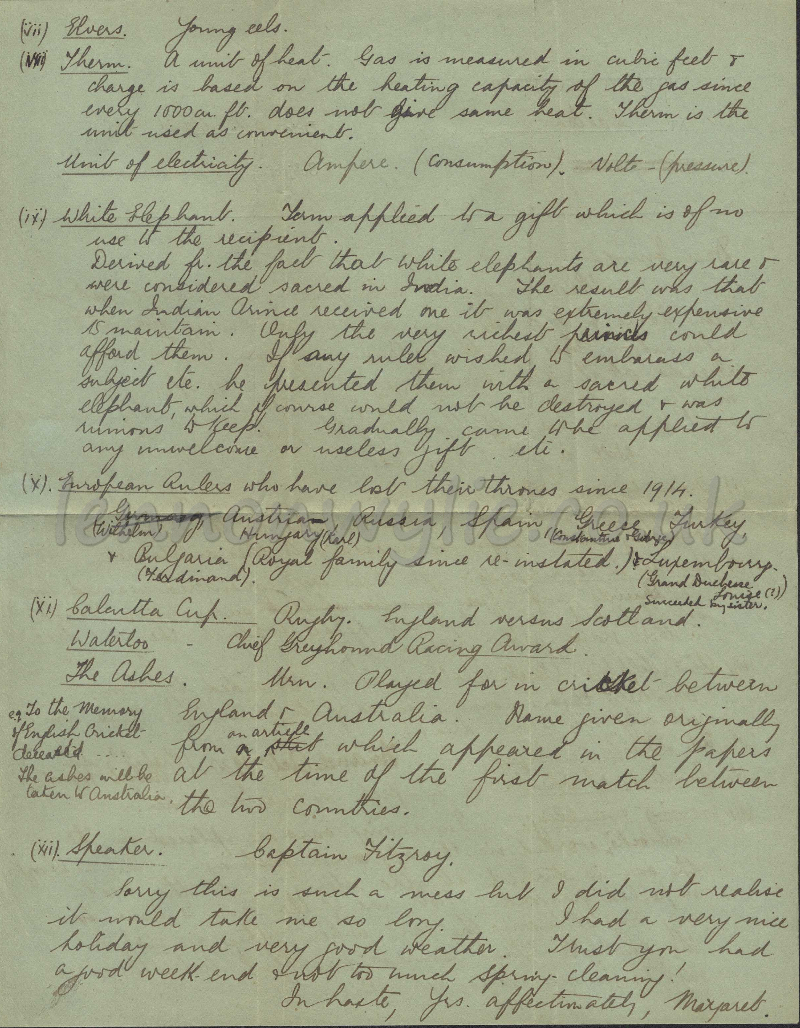 (vii) Elvers. Young eels.
(viii) Therm. A unit of heat. Gas is measured in cubic feet &
charge is based on the heating capacity of the gas since
every 1000 cu. ft. does not give same heat. Therm is the
unit used as convenient.
Unit of electricity. Ampere. (Consumption). Volts - (pressure).
(ix) White Elephant. Term applied to a gift which is of no
use to the recipient.
Derived fr. the fact that white elephants are very rare &
were considered sacred in India. The result was that
when Indian Prince received one it was extremely expensive
to maintain. Only the very richest princes could
afford them. If any ruler wished to embarass a
subject etc. he presented them with a sacred white
elephant, which of course could not be destroyed & was
ruinous to keep. Gradually came to be applied to
any unwelcome or useless gift etc.
(x). European Rulers who have lost their thrones since 1914.
Germany Austria, Russia, Spain Greece, Turkey
(Wilhelm) Hungary (Karl) (Constantine & George)
& Bulgaria (Royal family since re-instated.) & Luxembourg.
(Ferdinand). (Grand Duchesse
Louise (?)
succeeded by sister.
(xi) Calcutta Cup. Rugby. England versus Scotland.
Waterloo - Chief Greyhound Racing Award.
The Ashes. Urn. Played for in cricket between
England & Australia. Name given originally
from an article which appeared in the papers
at the time of the first match between
the two countries.
eg. To the Memory
of English Cricket
deceased ....
The ashes will be
taken to Australia.
(xii) Speaker. Captain Fitzroy.
Sorry this is such a mess but I did not realise
it would take me so long. I had a very nice
holiday and very good weather. Trust you had
a good week-end & not too much spring-cleaning!
In haste, Yrs. affectionately, Margaret.